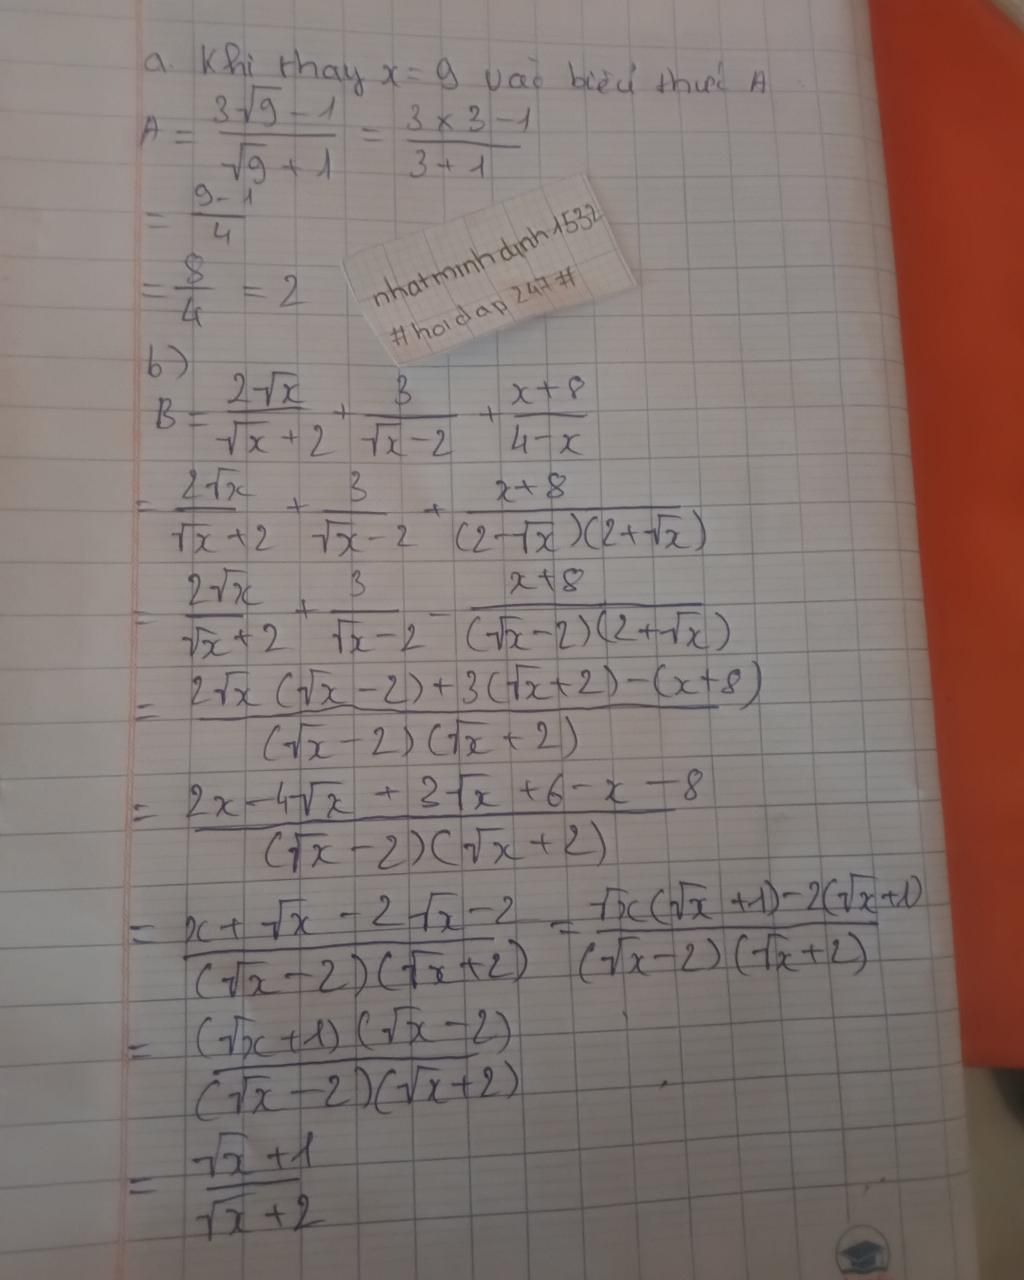 a. Khi thay x = 9 vào biểu thức A
A = (3√9 - 1)/(√9 + 1) = (3 × 3 - 1)/(3 + 1)
= (9 - 1)/4
= 8/4 = 2
nhatminhdinh1532
#hoidap247#
b)
B = 2√x/(√x + 2) + 3/(√x - 2) + (x + 8)/(4 - x)
= 2√x/(√x + 2) + 3/(√x - 2) + (x + 8)/((2 - √x)(2 + √x))
= 2√x/(√x + 2) + 3/(√x - 2) - (x + 8)/((√x - 2)(2 + √x))
= (2√x(√x - 2) + 3(√x + 2) - (x + 8))/((√x - 2)(√x + 2))
= (2x - 4√x + 3√x + 6 - x - 8)/((√x - 2)(√x + 2))
= (x + √x - 2√x - 2)/((√x - 2)(√x + 2)) = (√x(√x + 1) - 2(√x + 1))/((√x - 2)(√x + 2))
= ((√x + 1)(√x - 2))/((√x - 2)(√x + 2))
= (√x + 1)/(√x + 2)